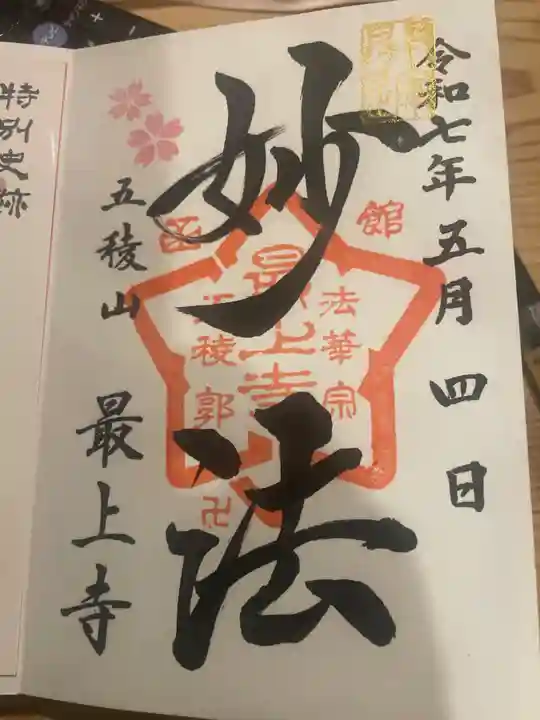 令和七年五月四日
妙法
館
函
法華宗
最上寺
五稜郭
卍
五稜山
最上寺
特別史跡